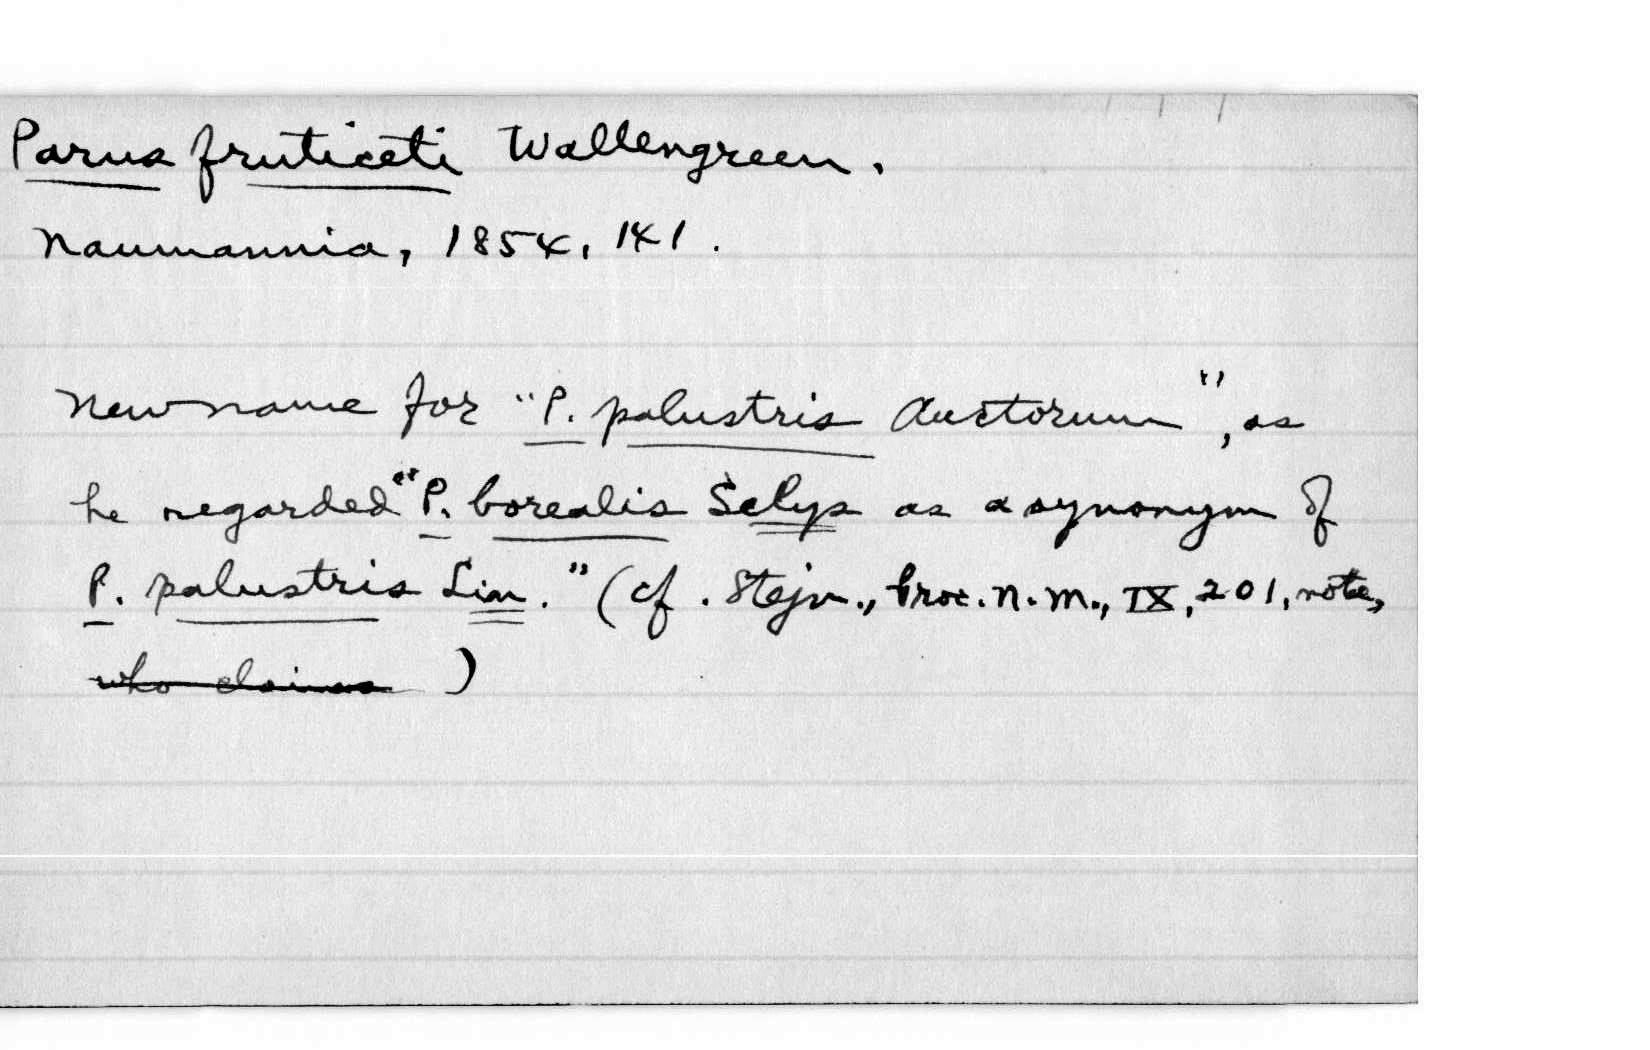 Parus fruticeti Wallengreen.
Naumannia, 1854, 141.
New name for "P. palustris Auctorum", as
he regarded "P. borealis Selys as a synonym of
P. palustris Lin." (cf. Stejn., Proc. N. M., IX, 201, note,
who claims )